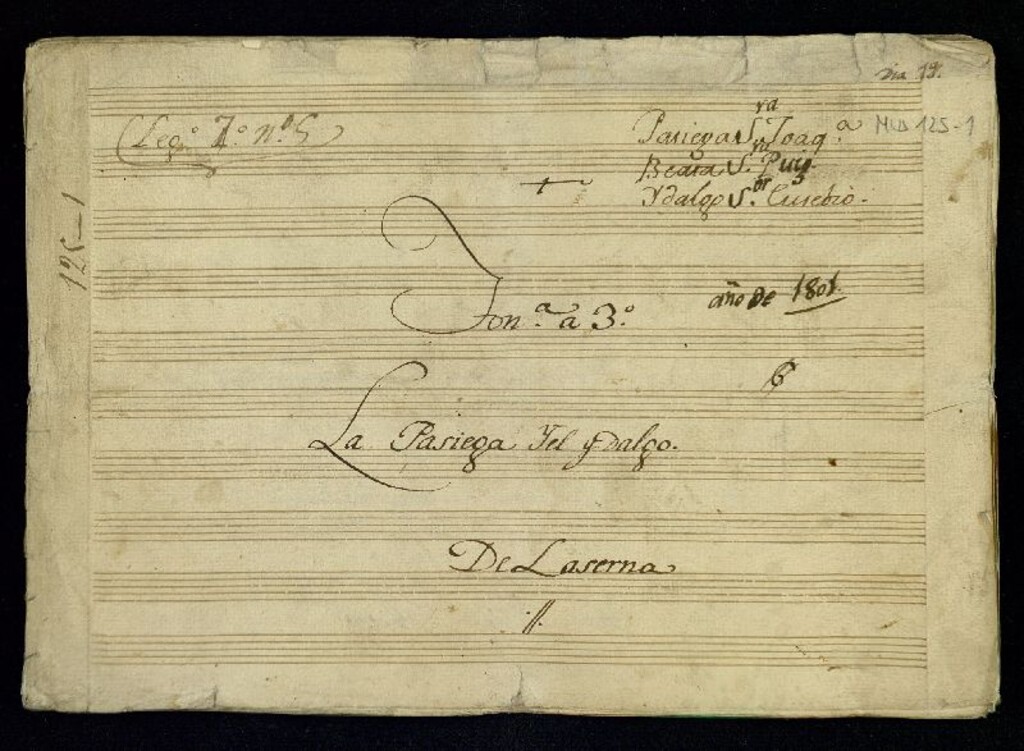 Dia 19.
Leg.º 7.º n.º 5
Pasiega S.ra Joaq.a
Mus 125-1
Beata S.ra Puig.
Ydalgo S.or Eusebio.
125-1
Ton.a a 3.º
año de 1801.
La Pasiega Yel ydalgo.
De Laserna